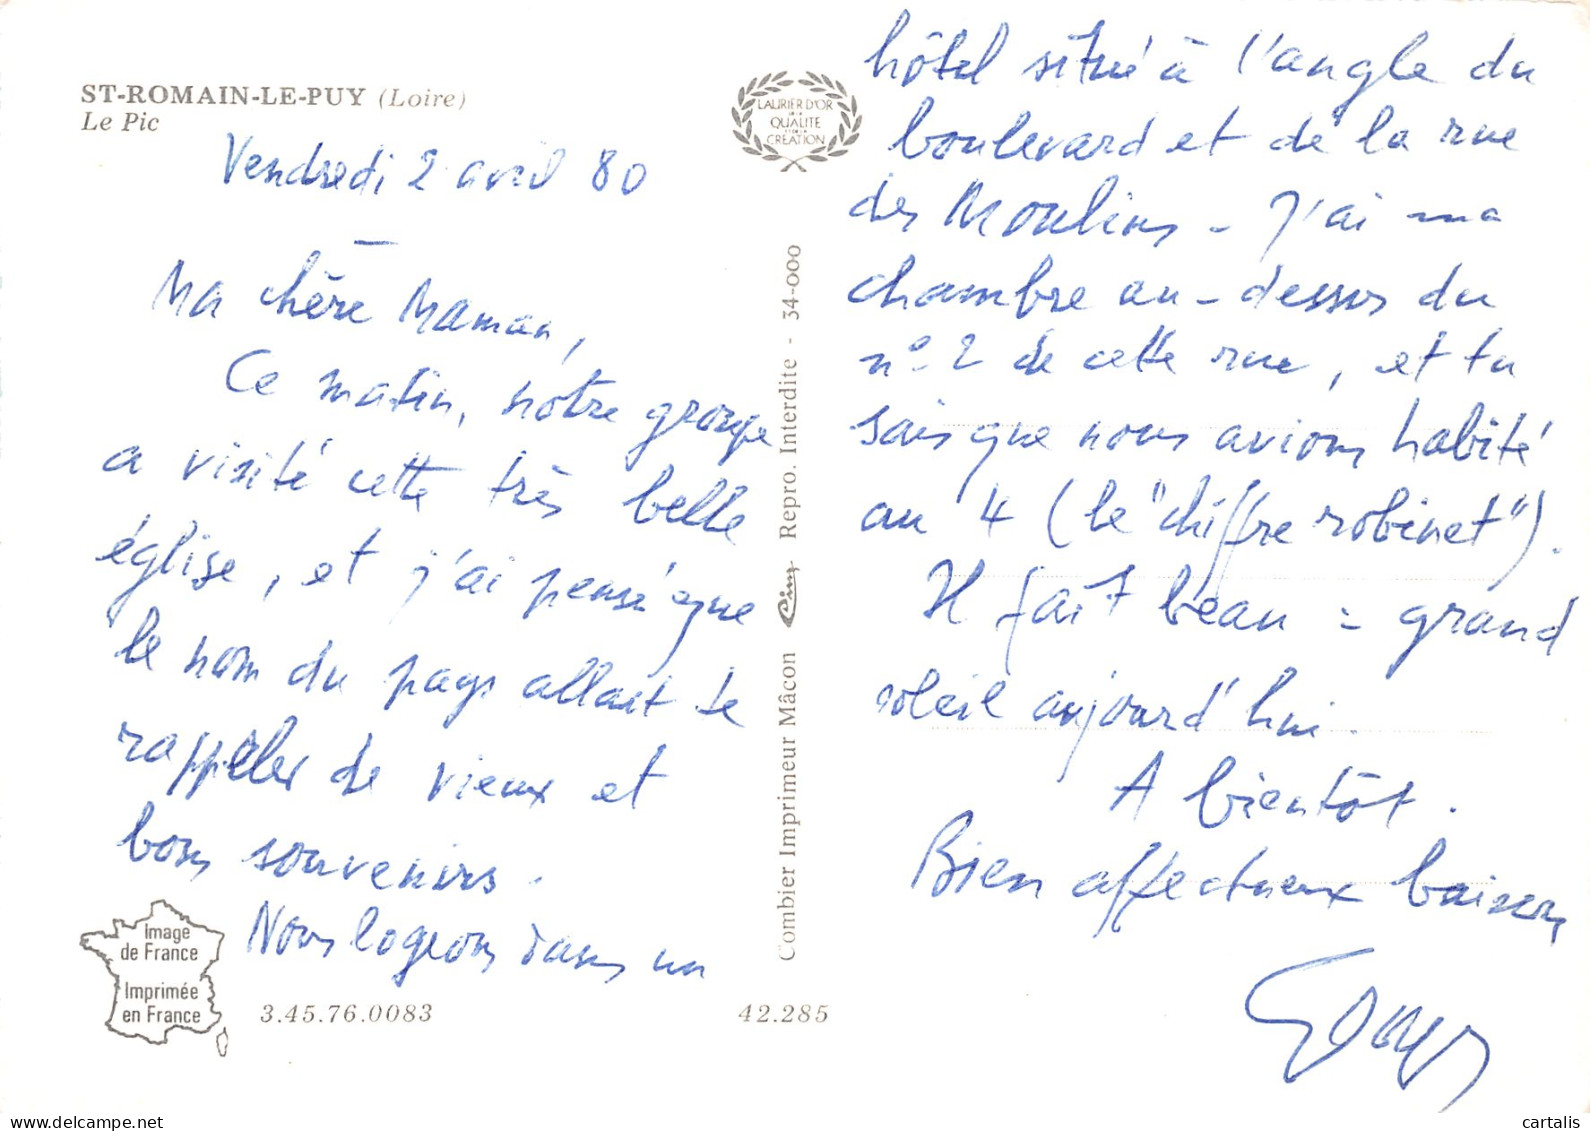 ST-ROMAIN-LE-PUY (Loire)
Le Pic
LAURIER D'OR
DE LA
QUALITE
CREATION
Vendredi 2 avril 80
Ma chère Maman,
Ce matin, notre groupe
a visité cette très belle
église, et j'ai pensé que
le nom du pays allait te
rappeler de vieux et
bons souvenirs.
Nous logeons dans un
hôtel situé à l'angle du
boulevard et de la rue
des Moulins - J'ai ma
chambre au-dessus du
n° 2 de cette rue, et tu
sais que nous avions habité
au 4 (le "chiffre robinet").
Il fait beau = grand
soleil aujourd'hui.
A bientôt.
Bien affectueux baisers
Combier Imprimeur Mâcon Cim Repro. Interdite - 34-000
Image
de France
Imprimée
en France
3.45.76.0083
42.285
delcampe.net
cartalis